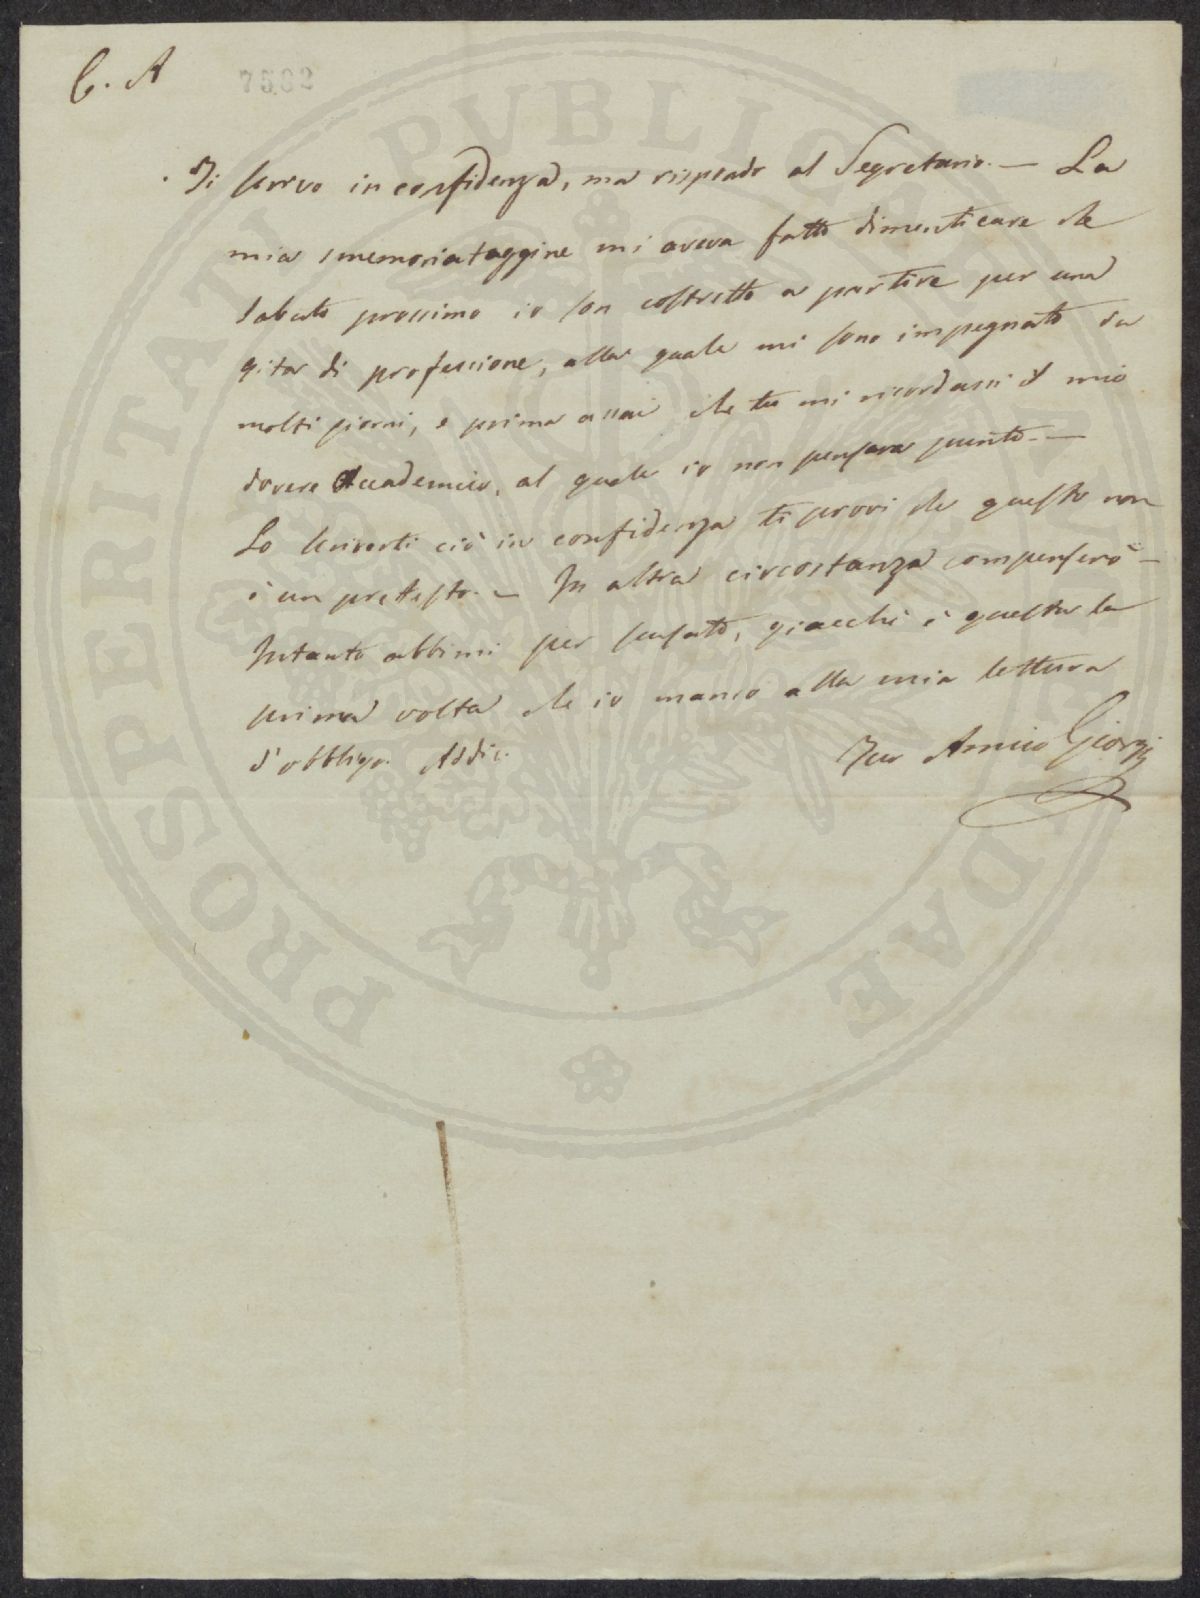 C. A
7562
Ti scrivo in confidenza, ma rispondo al Segretario. — La
mia smemoriataggine mi aveva fatto dimenticare che
Sabato prossimo io son costretto a partire per una
gita di professione, alla quale mi sono impegnato da
molti giorni, e prima assai che tu mi ricordassi il mio
dovere Accademico, al quale io non pensava punto. —
Lo scriverti ciò in confidenza ti provi che questo non
è un pretesto. — In altra circostanza compenserò —
Intanto abbimi per scusato, giacchè è questa la
prima volta che io manco alla mia lettura
d'obbligo. Addio.
Tuo Amico Giorgj
PROSPERITATI PUBLICAE